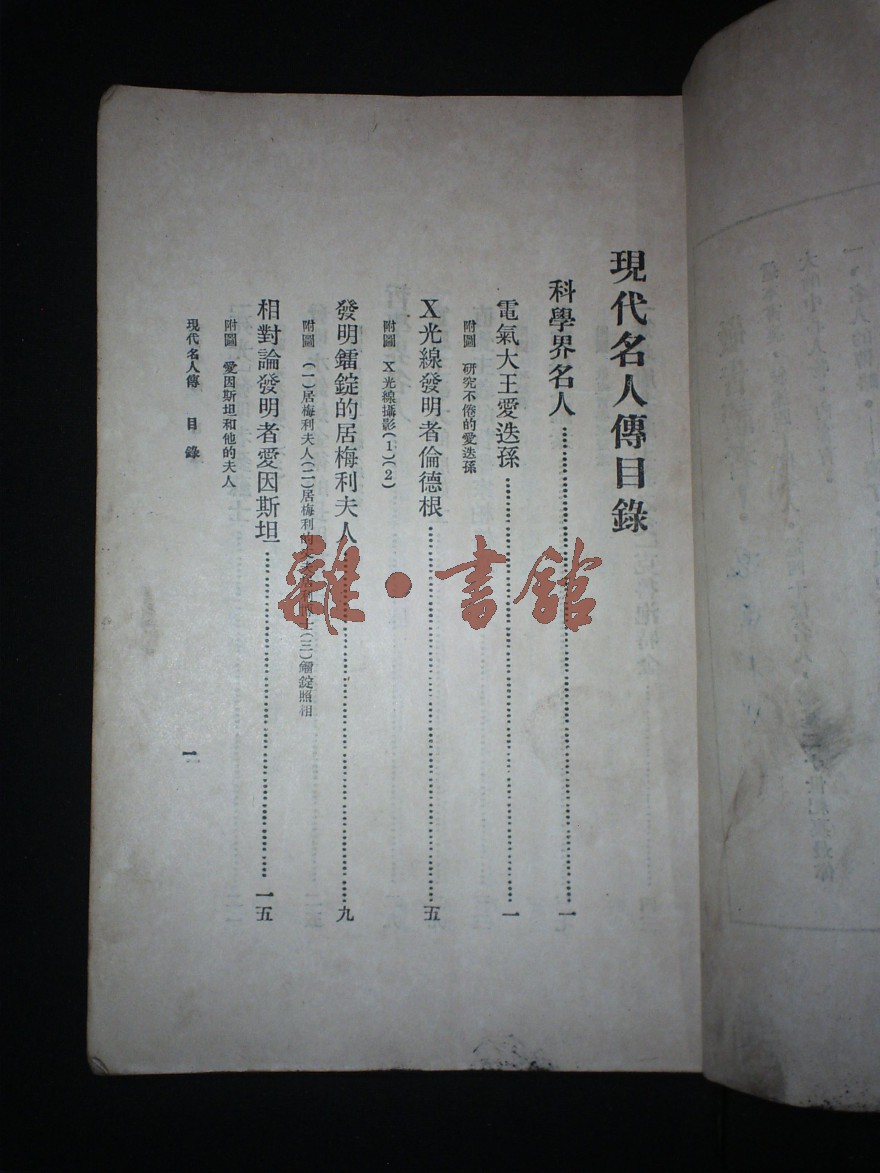 現代名人傳目錄
科學界名人……一
電氣大王愛迭孫……一
附圖 研究不倦的愛迭孫
X光線發明者倫德根……五
附圖 X光線攝影(1)(2)
發明鐳錠的居梅利夫人……九
附圖 (一)居梅利夫人(二)居梅利的 士(三)鐳錠照相
相對論發明者愛因斯坦……一五
附圖 愛因斯坦和他的夫人
現代名人傳 目錄
雜·書館